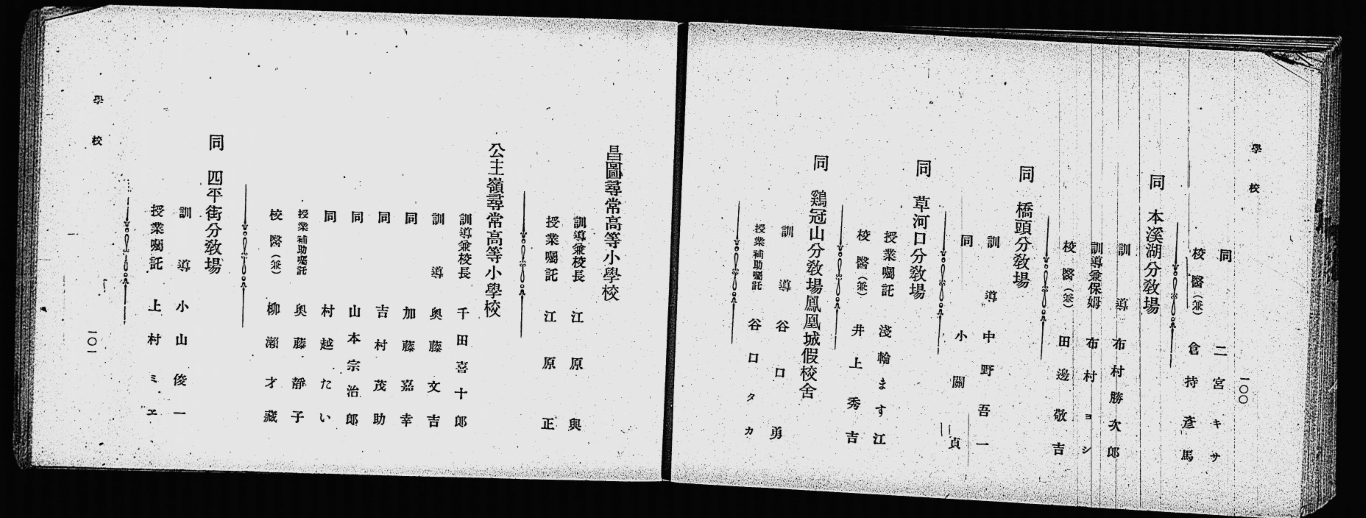 學校
一〇〇
同 二宮キサ
校醫(兼) 倉持彦馬
同 本溪湖分敎場
訓導 布村勝次郎
訓導兼保姆 布村ヨシ
校醫(兼) 田邊敬吉
同 橋頭分敎場
訓導 中野吾一
同 小關貞
同 草河口分敎場
授業囑託 淺輪ます江
校醫(兼) 井上秀吉
同 鷄冠山分敎場鳳凰城假校舍
訓導 谷口勇
授業補助囑託 谷口タカ
昌圖尋常高等小學校
訓導兼校長 江原與
授業囑託 江原正
公主嶺尋常高等小學校
訓導兼校長 千田喜十郎
訓導 奥藤文吉
同 加藤嘉幸
同 吉村茂助
同 山本宗治郎
同 村越たい
授業補助囑託 奥藤靜子
校醫(兼) 柳瀨才藏
同 四平街分敎場
訓導 小山俊一
授業囑託 上村ミヱ
學校
一〇一